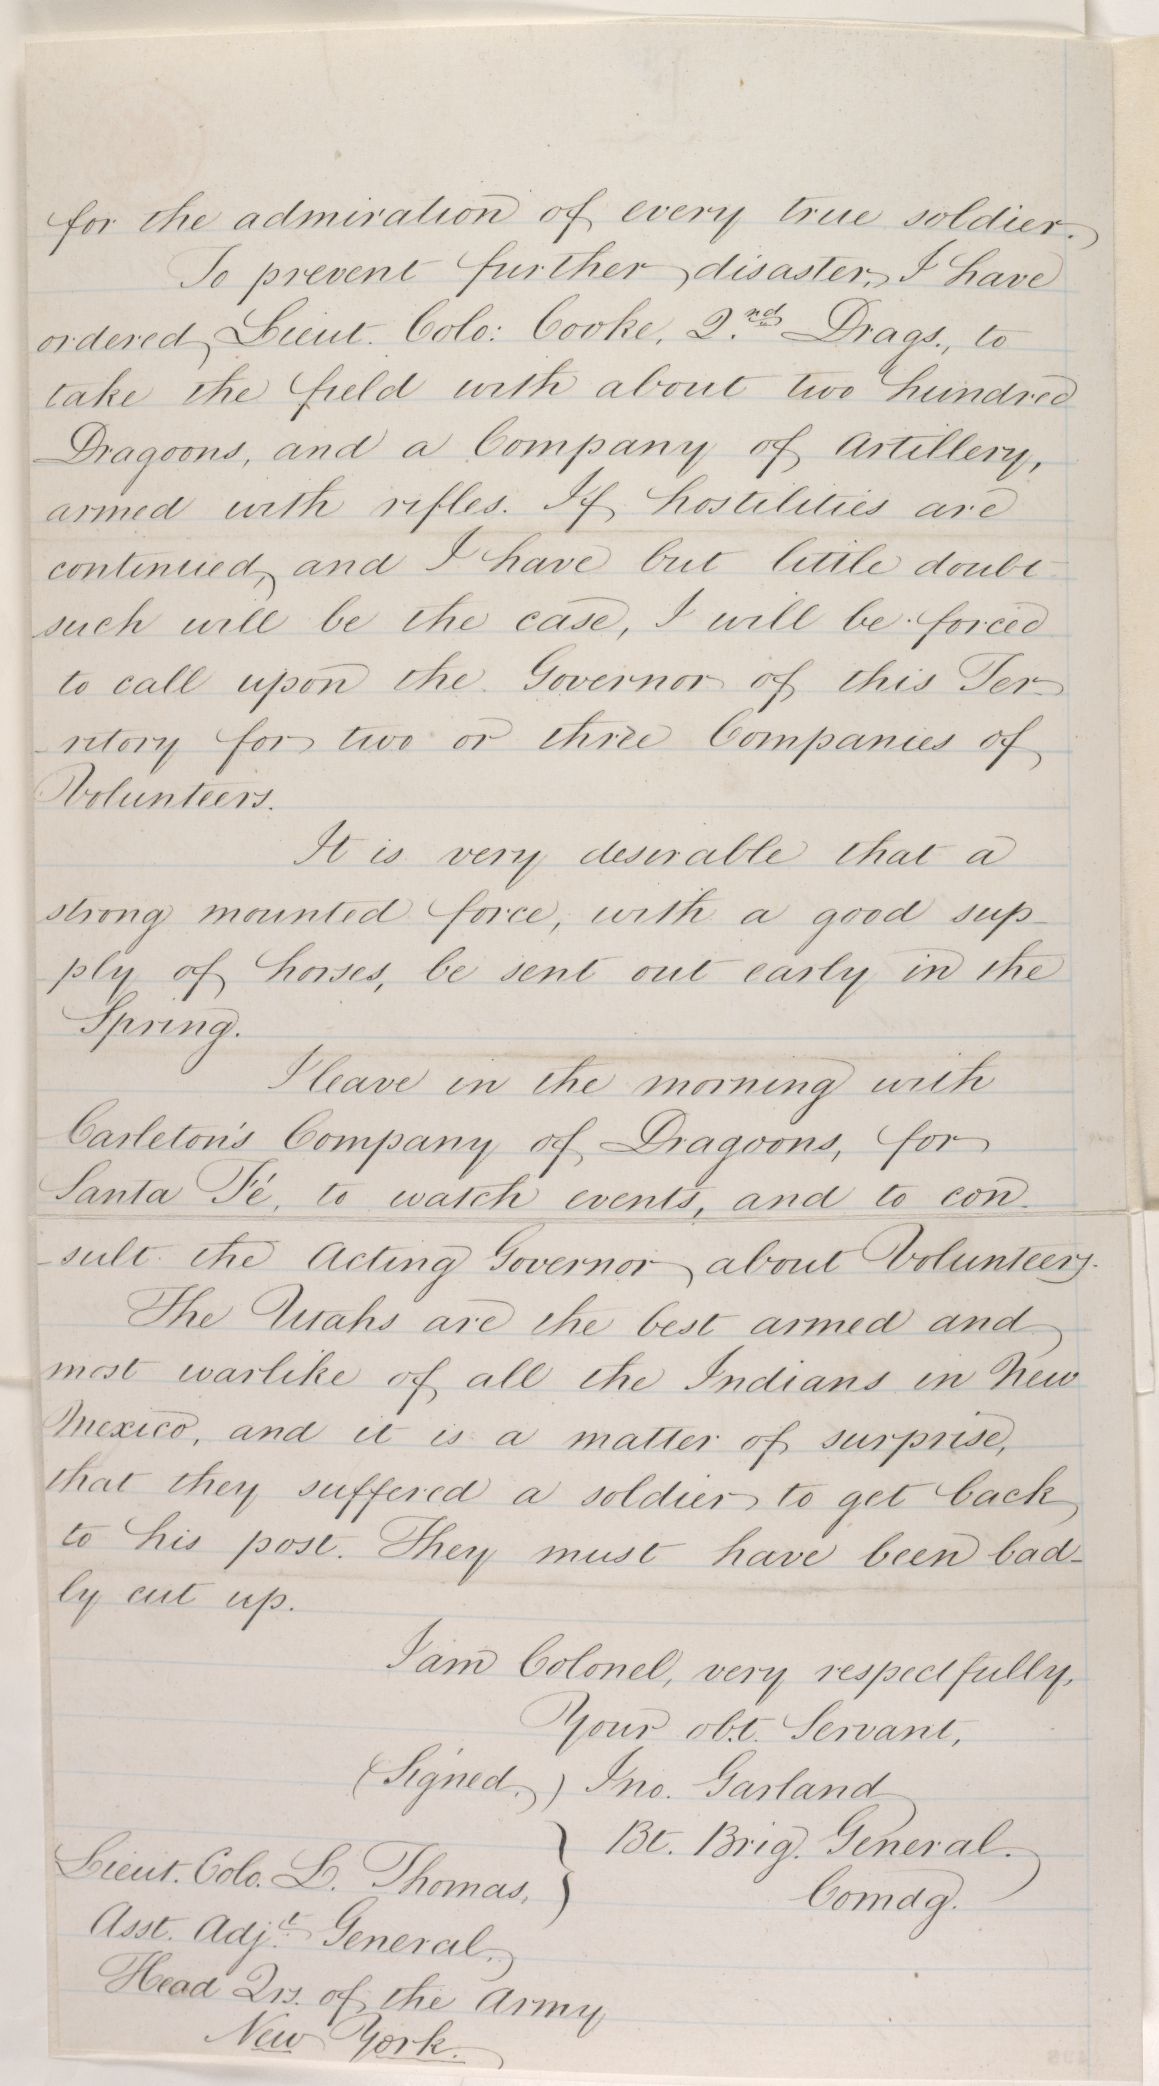 for the admiration of every true soldier.
To prevent further disaster, I have
ordered Lieut. Colo: Cooke, 2.nd Drags., to
take the field with about two hundred
Dragoons, and a Company of Artillery,
armed with rifles. If hostilities are
continued, and I have but little doubt
such will be the case, I will be forced
to call upon the Governor of this Ter-
-ritory for two or three Companies of
Volunteers.
It is very desirable that a
strong mounted force, with a good sup-
-ply of horses, be sent out early in the
Spring.
I leave in the morning with
Carleton's Company of Dragoons, for
Santa Fé, to watch events, and to con-
-sult the Acting Governor about Volunteers.
The Utahs are the best armed and
most warlike of all the Indians in New
Mexico, and it is a matter of surprise,
that they suffered a soldier to get back
to his post. They must have been bad-
ly cut up.
I am Colonel, very respectfully,
Your obt. Servant,
(Signed,) Jno. Garland
Bt. Brig. General.
Comdg.
Lieut. Colo. L. Thomas,
Asst. Adj.t General,
Head Qrs. of the Army
New York.